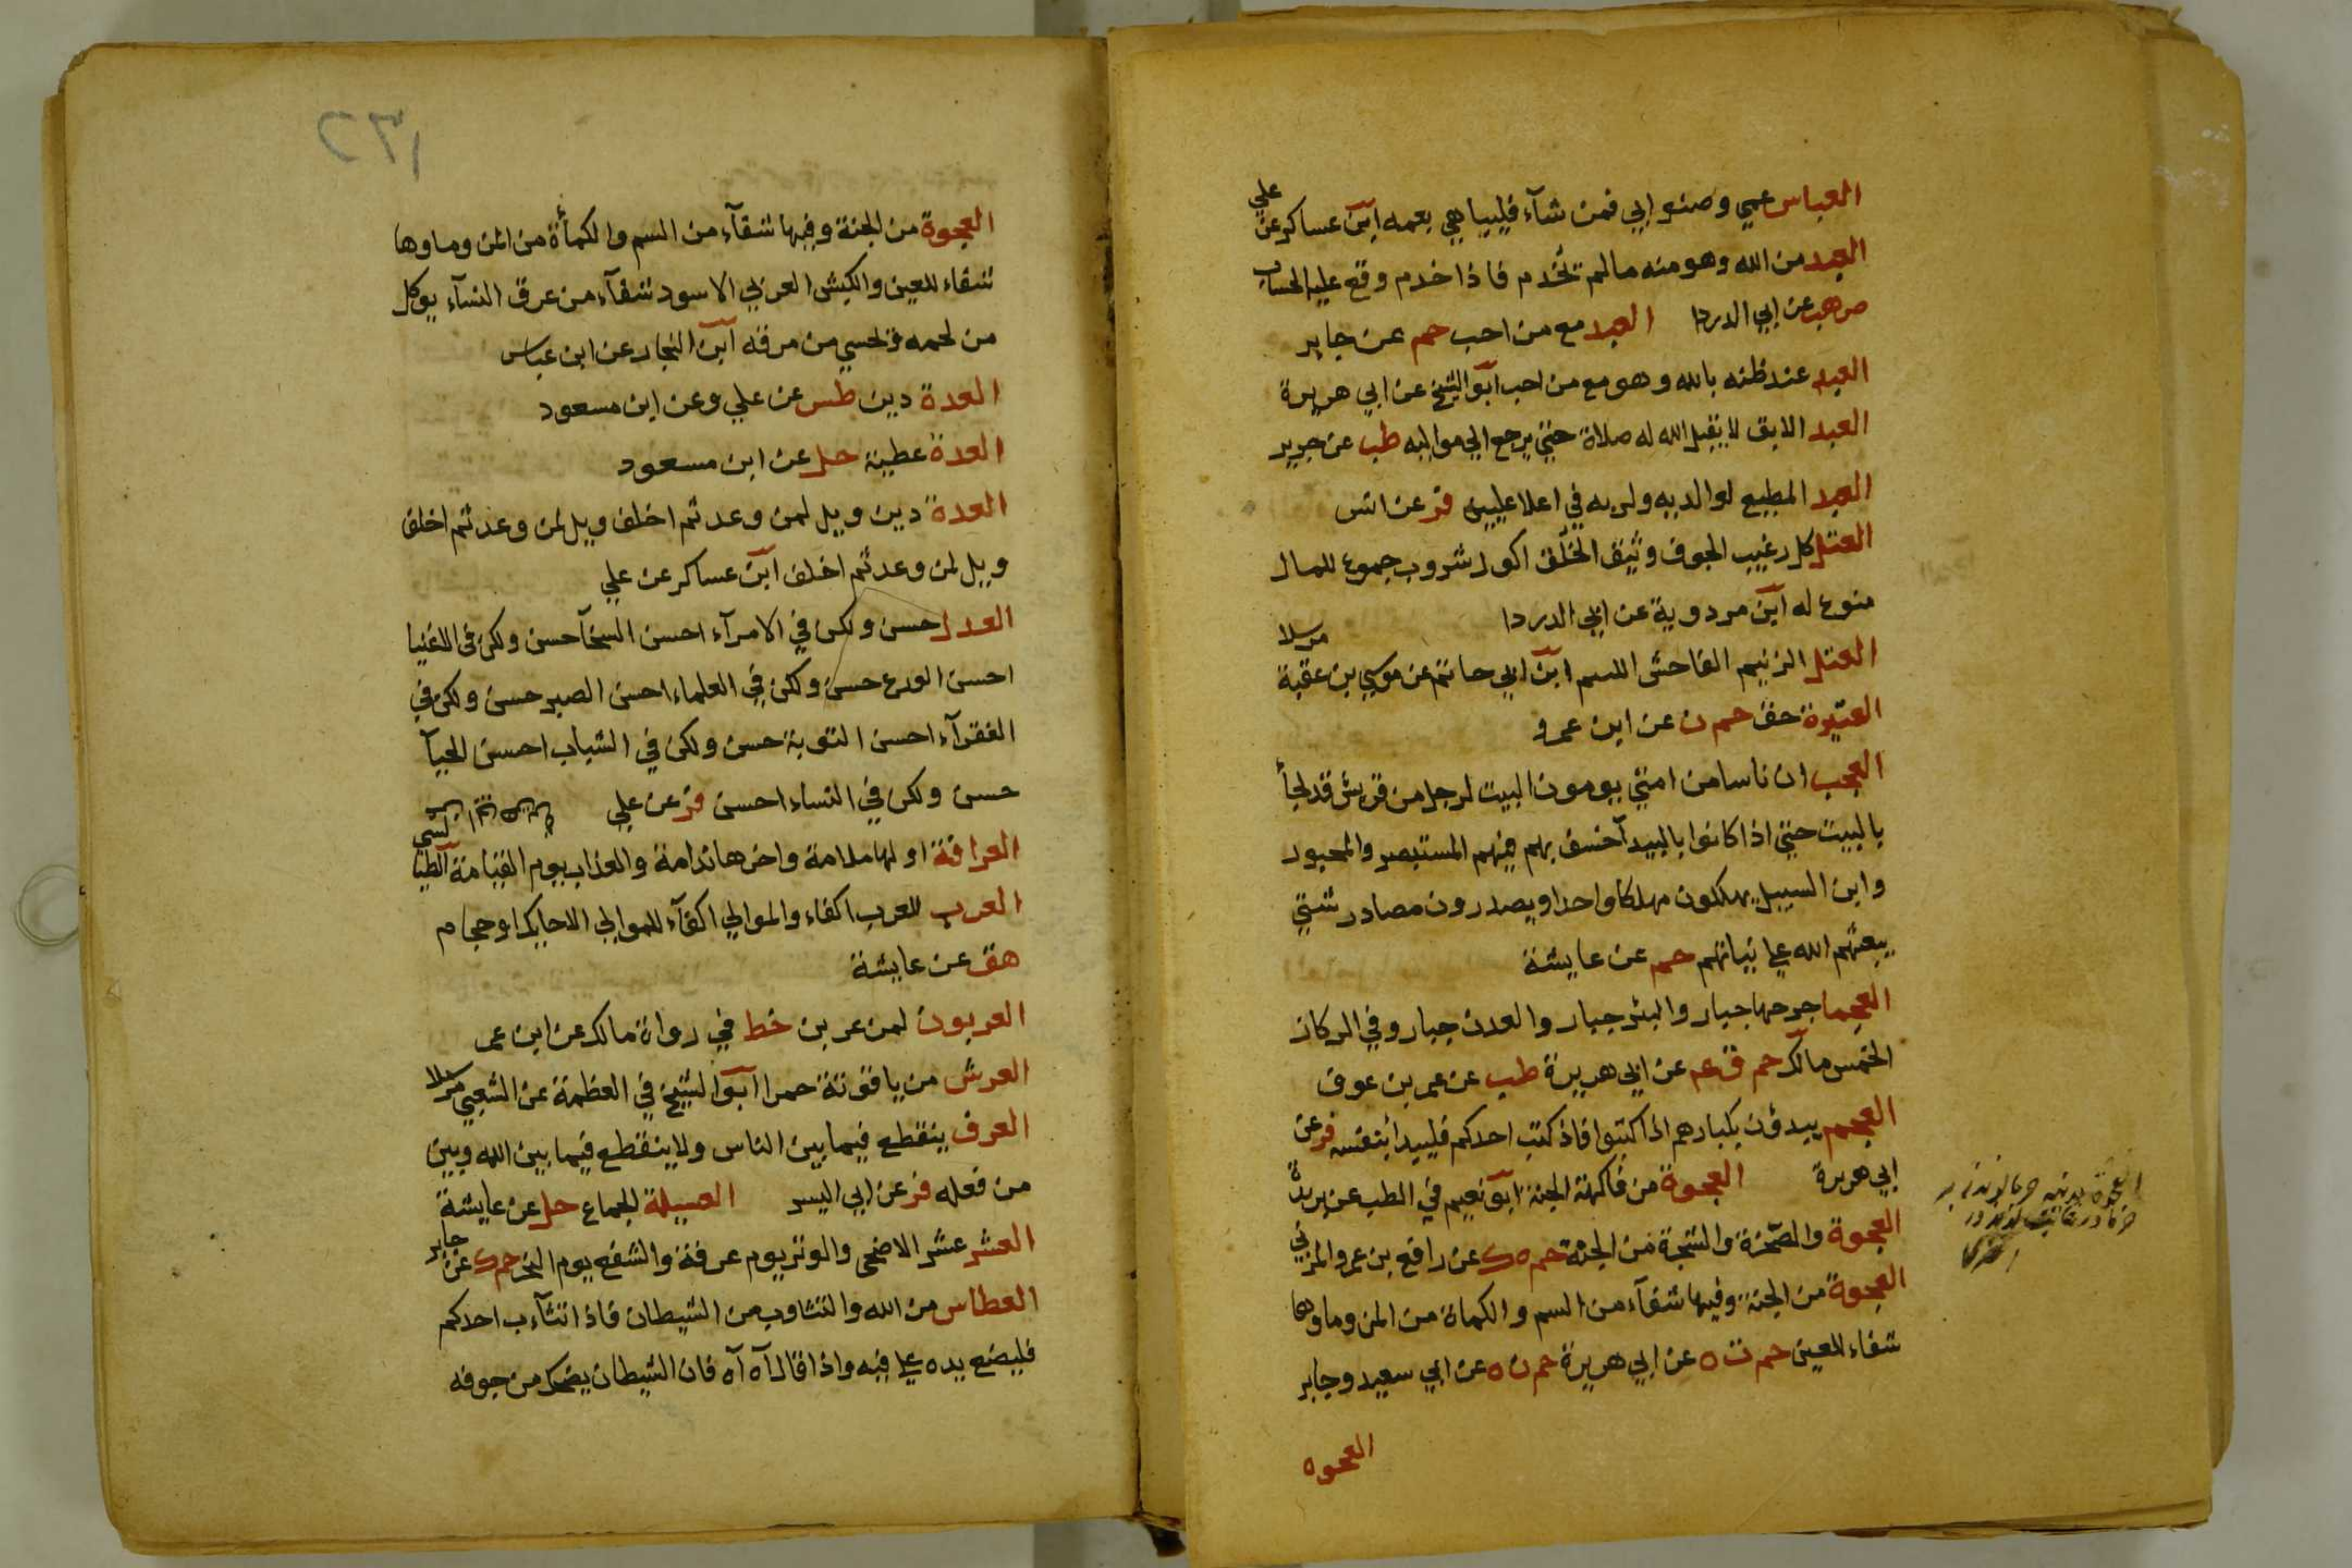 العباس عمي وصنو ابي فمن شآء فليباهي بعمه ابن عساكر عن علي
العبد من الله وهو منه مالم يخدم فاذا خدم وقع عليه الحساب
ص هب عن ابي الدردا العبد مع من احب حم عن جابر
العبد عند ظنه بالله وهو مع من احب ابو الشيخ عن ابي هريرة
العبد الابق لا يقبل الله له صلاة حتي يرجع الي مواليه طب عن جرير
العبد المطيع لوالديه ولربه في اعلا عليين فر عن انس
العتل كل رغيب الجوف وثيق الخلق اكول شروب جموع للمال
منوع له ابن مردوية عن ابي الدردا
العتل الزنيم الفاحش اللئيم ابن ابي حاتم عن موسي بن عقبة مرسلا
العتيرة حق حم ن عن ابن عمرو
العجب ان ناسا من امتي يومون البيت لرجل من قريش قد لجأ
بالبيت حتي اذا كانوا بالبيدآ خسف بهم فيهم المستبصر والمجبور
وابن السبيل يهلكون مهلكا واحدا ويصدرون مصادر شتي
يبعثهم الله علي نياتهم حم عن عايشة
العجما جرحها جبار والبئر جبار والعدن جبار وفي الركاز
الخمس مالك حم ق عم عن ابي هريرة طب عن عمر بن عوف
العجم يبدؤن بكبارهم اذا كتبوا فاذ كتب احدكم فليبدا بنفسه فر عن
ابي هريرة العجوة من فاكهة الجنة ابو نعيم في الطب عن بريدة
العجوة والصخرة والشجرة من الجنة حم ه ك عن رافع بن عمرو المزني
العجوة من الجنة وفيها شفآء من السم والكماة من المن وماوها
شفاء للعين حم ت ه عن ابي هريرة حم ن ه عن ابي سعيد وجابر
العجوه
١٣٢
العجوة من الجنة وفيها شفآء من السم والكمأة من المن وماوها
شفاء للعين والكبش العربي الاسود شفآء من عرق النسآء يوكل
من لحمه ويحسي من مرقه ابن النجار عن ابن عباس
العدة دين طس عن علي وعن ابن مسعود
العدة عطية حل عن ابن مسعود
العدة دين ويل لمن وعد ثم اخلف ويل لمن وعد ثم اخلف
ويل لمن وعد ثم اخلف ابن عساكر عن علي
العدل حسن ولكن في الامرآء احسن السخآ حسن ولكن في الاغنيا
احسن الورع حسن ولكن في العلماء احسن الصبر حسن ولكن في
الفقرآء احسن التوبة حسن ولكن في الشباب احسن الحيآ
حسن ولكن في النساء احسن فر عن علي
العرافة اولها ملامة واخرها ندامة والعذاب يوم القيامة الطيالسي
العرب للعرب اكفاء والموالي اكفآء للموالي الا حايكا او حجام
هق عن عايشة
العربون لمن عربن خط في رواة مالك عن ابن عمر
العرش من ياقوتة حمرا ابو الشيخ في العظمة عن الشعبي مرسلا
العرف ينقطع فيما بين الناس ولا ينقطع فيما بين الله وبين
من فعله فر عن ابي اليسر العسيلة الجماع حل عن عايشة
العشر عشر الاضحى والوتر يوم عرفة والشفع يوم النحر حم ك عن جابر
العطاس من الله والتثاوب من الشيطان فاذا تثآءب احدكم
فليضع يده علي فيه واذا قال آه آه فان الشيطان يضحك من جوفه